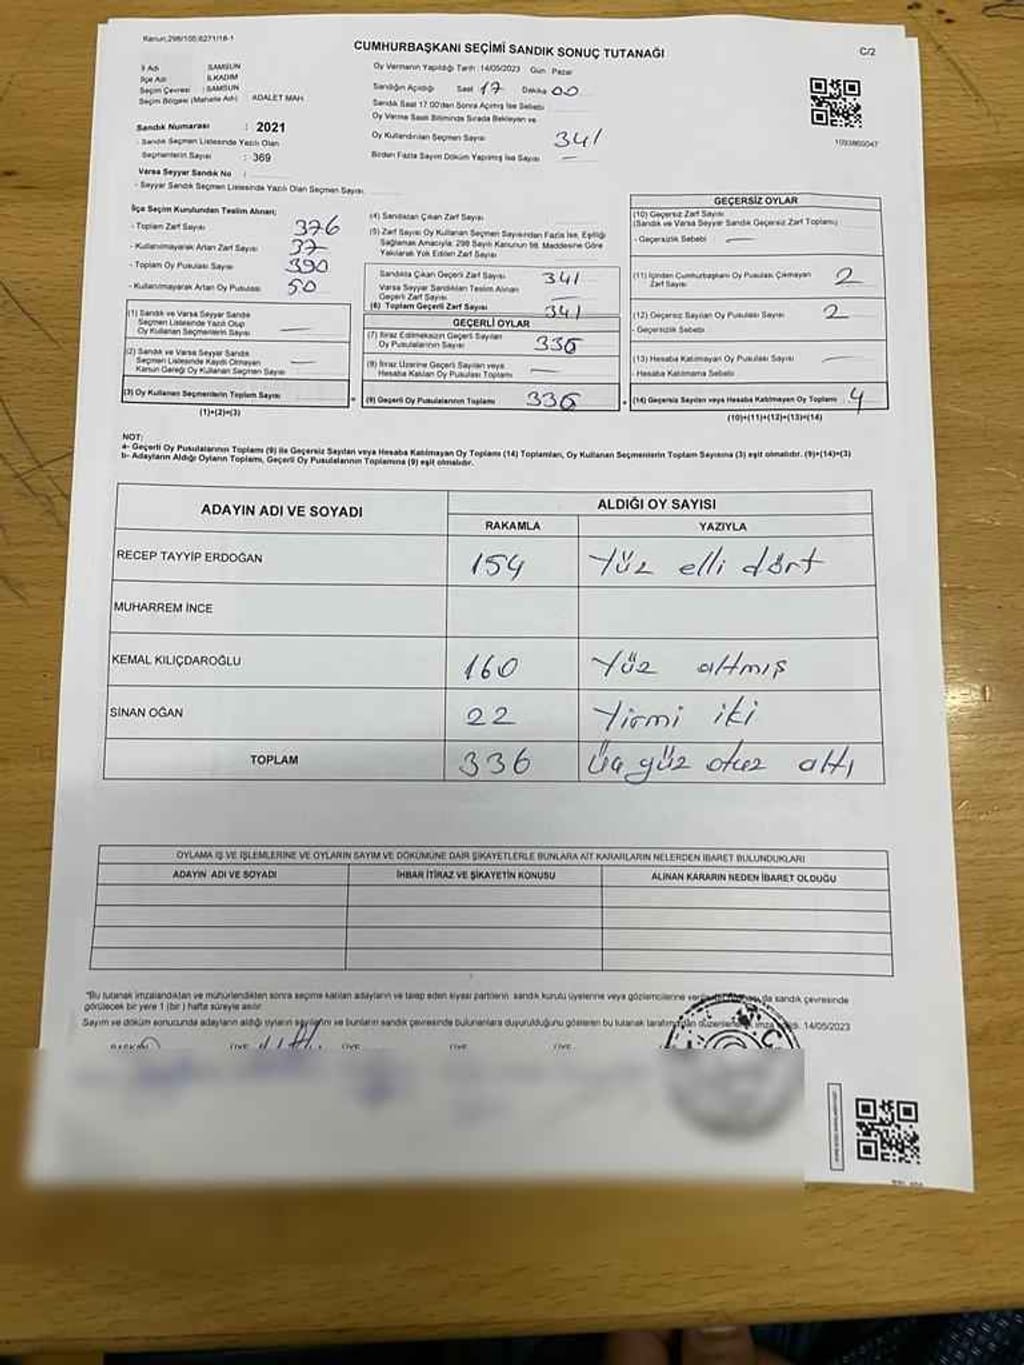 Kanun;298/100;6271/18-1
CUMHURBAŞKANI SEÇİMİ SANDIK SONUÇ TUTANAĞI
C/2
İl Adı : SAMSUN
İlçe Adı : İLKADIM
Seçim Çevresi : SAMSUN
Seçim Bölgesi (Mahalle Adı) : ADALET MAH.
Sandık Numarası : 2021
- Sandık Seçmen Listesinde Yazılı Olan
Seçmenlerin Sayısı : 369
Varsa Seyyar Sandık No :
- Seyyar Sandık Seçmen Listesinde Yazılı Olan Seçmen Sayısı
Oy Vermenin Yapıldığı Tarih :14/05/2023 Gün : Pazar
Sandığın Açıldığı Saat 17 Dakika 00
Sandık Saat 17:00'den Sonra Açılmış İse Sebebi
Oy Verme Saati Bitiminde Sırada Bekleyen ve
Oy Kullandırılan Seçmen Sayısı 341
Birden Fazla Sayım Döküm Yapılmış İse Sayısı —
1093860047
İlçe Seçim Kurulundan Teslim Alınan;
- Toplam Zarf Sayısı 376
- Kullanılmayarak Artan Zarf Sayısı 37
- Toplam Oy Pusulası Sayısı 390
- Kullanılmayarak Artan Oy Pusulası 50
(1) Sandık ve Varsa Seyyar Sandık
Seçmen Listesinde Yazılı Olup
Oy Kullanan Seçmenlerin Sayısı —
(2) Sandık ve Varsa Seyyar Sandık
Seçmen Listesinde Kaydı Olmayan
Kanun Gereği Oy Kullanan Seçmen Sayısı —
(3) Oy Kullanan Seçmenlerin Toplam Sayısı
(1)+(2)=(3)
(4) Sandıktan Çıkan Zarf Sayısı
(5) Zarf Sayısı Oy Kullanan Seçmen Sayısından Fazla İse, Eşitliği
Sağlamak Amacıyla, 298 Sayılı Kanunun 98. Maddesine Göre
Yakılarak Yok Edilen Zarf Sayısı
Sandıkta Çıkan Geçerli Zarf Sayısı 341
Varsa Seyyar Sandıktan Teslim Alınan
Geçerli Zarf Sayısı —
(6) Toplam Geçerli Zarf Sayısı 341
GEÇERLİ OYLAR
(7) İtiraz Edilmeksizin Geçerli Sayılan
Oy Pusulalarının Sayısı 336
(8) İtiraz Üzerine Geçerli Sayılan veya
Hesaba Katılan Oy Pusulası Toplamı —
(9) Geçerli Oy Pusulalarının Toplamı 336
GEÇERSİZ OYLAR
(10) Geçersiz Zarf Sayısı
(Sandık ve Varsa Seyyar Sandık Geçersiz Zarf Toplamı)
- Geçersizlik Sebebi —
(11) İçinden Cumhurbaşkanı Oy Pusulası Çıkmayan
Zarf Sayısı 2
(12) Geçersiz Sayılan Oy Pusulası Sayısı 2
- Geçersizlik Sebebi
(13) Hesaba Katılmayan Oy Pusulası Sayısı —
- Hesaba Katılmama Sebebi
(14) Geçersiz Sayılan veya Hesaba Katılmayan Oy Toplamı 4
(10)+(11)+(12)+(13)=(14)
NOT:
a- Geçerli Oy Pusulalarının Toplamı (9) ile Geçersiz Sayılan veya Hesaba Katılmayan Oy Toplamı (14) Toplamları, Oy Kullanan Seçmenlerin Toplam Sayısına (3) eşit olmalıdır. (9)+(14)=(3)
b- Adayların Aldığı Oyların Toplamı, Geçerli Oy Pusulalarının Toplamına (9) eşit olmalıdır.
ADAYIN ADI VE SOYADI ALDIĞI OY SAYISI
RAKAMLA YAZIYLA
RECEP TAYYİP ERDOĞAN 154 Yüz elli dört
MUHARREM İNCE
KEMAL KILIÇDAROĞLU 160 Yüz altmış
SİNAN OĞAN 22 Yirmi iki
TOPLAM 336 Üç yüz otuz altı
OYLAMA İŞ VE İŞLEMLERİNE VE OYLARIN SAYIM VE DÖKÜMÜNE DAİR ŞİKAYETLERLE BUNLARA AİT KARARLARIN NELERDEN İBARET BULUNDUKLARI
ADAYIN ADI VE SOYADI İHBAR İTİRAZ VE ŞİKAYETİN KONUSU ALINAN KARARIN NEDEN İBARET OLDUĞU
"Bu tutanak imzalandıktan ve mühürlendikten sonra seçime katılan adayların ve talep eden siyasi partilerin sandık kurulu üyelerine veya gözlemcilerine da sandık çevresinde
görülecek bir yere 1 (bir) hafta süreyle asılır.
Sayım ve döküm sonucunda adayların aldığı oyların sayılarını ve bunların sandık çevresinde bulunanlara duyurulduğunu gösteren bu tutanak tarafımızdan 14/05/2023
BAŞKAN ÜYE ÜYE ÜYE ÜYE